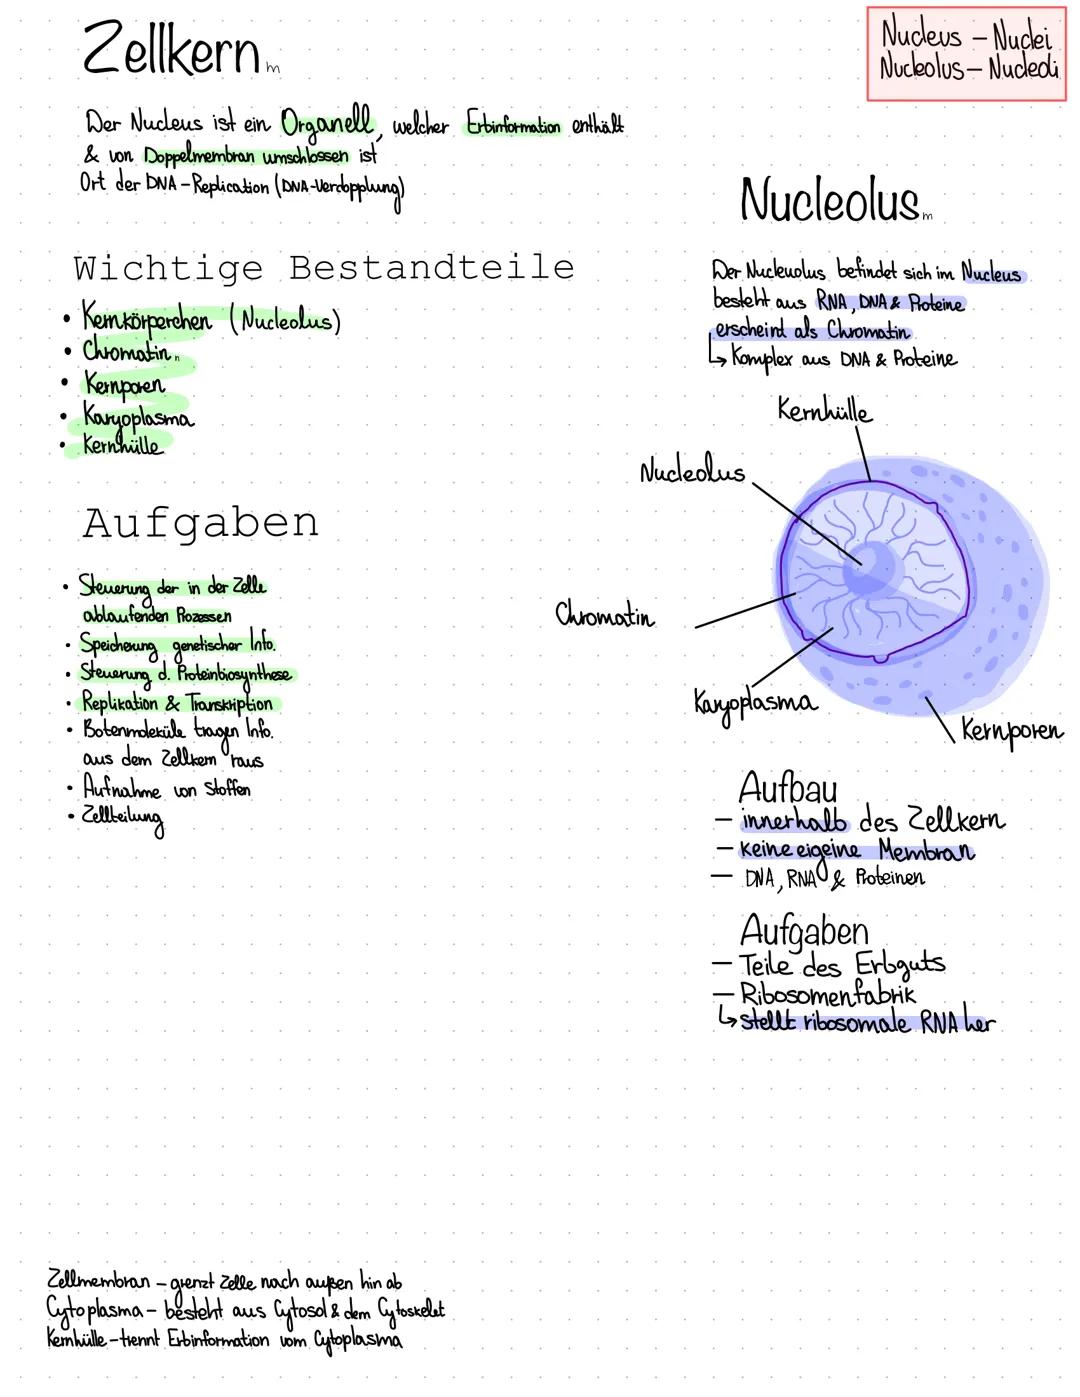 Zellkern m
Nucleus – Nuclei
Nucleolus – Nucleoli
Der Nucleus ist ein Organell, welcher Erbinformation enthält
& von Doppelmembran umschlossen ist
Ort der DNA-Replication (DNA-Verdopplung)
Wichtige Bestandteile
• Kernkörperchen (Nucleolus)
• Chromatin n
• Kernporen
• Karyoplasma
• Kernhülle
Aufgaben
• Steuerung der in der Zelle
ablaufenden Prozessen
• Speicherung genetischer Info.
• Steuerung d. Proteinbiosynthese
• Replikation & Transkription
• Botenmoleküle tragen Info.
aus dem Zellkern raus
• Aufnahme von Stoffen
• Zellteilung
Nucleolus m
Der Nucleuolus befindet sich im Nucleus
besteht aus RNA, DNA & Proteine
erscheint als Chromatin
↳ Komplex aus DNA & Proteine
Kernhülle
Nucleolus
Chromatin
Karyoplasma
Kernporen
Aufbau
– innerhalb des Zellkern
– keine eigeine Membran
– DNA, RNA & Proteinen
Aufgaben
– Teile des Erbguts
– Ribosomenfabrik
↳ stellt ribosomale RNA her
Zellmembran – grenzt Zelle nach außen hin ab
Cytoplasma – besteht aus Cytosol & dem Cytoskelet
Kernhülle – trennt Erbinformation vom Cytoplasma